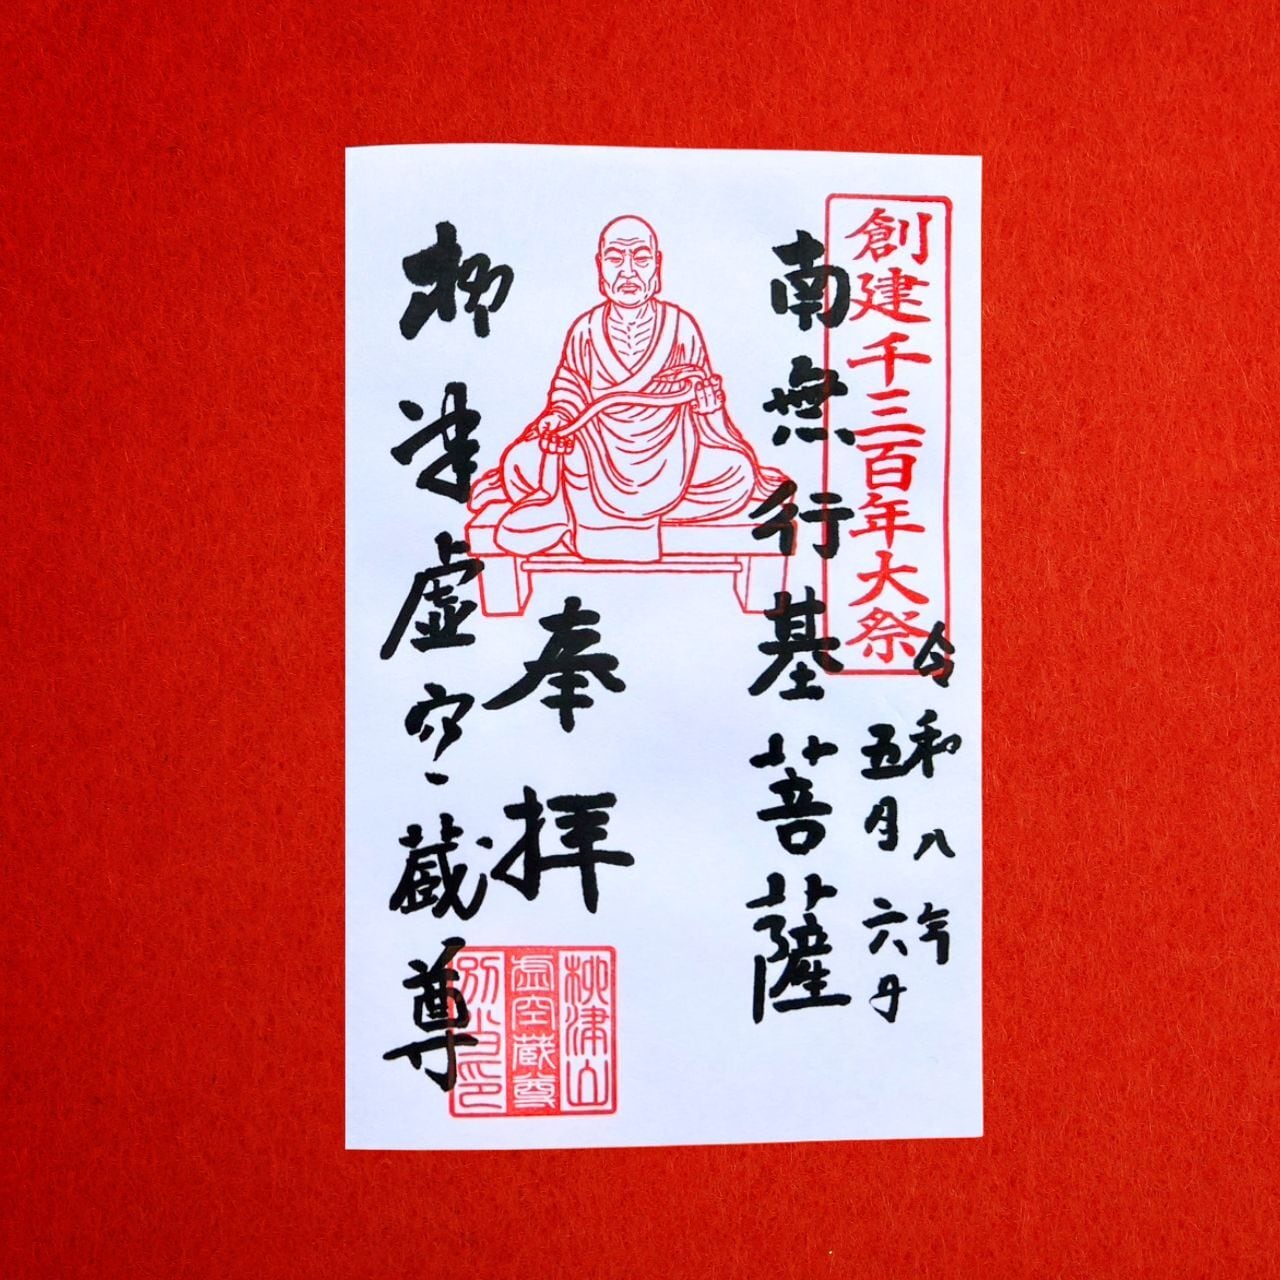 創建千三百年大祭
令和八年
五月六日
南無行基菩薩
奉拝
柳津虚空蔵尊
柳津山
虚空蔵尊
別当印